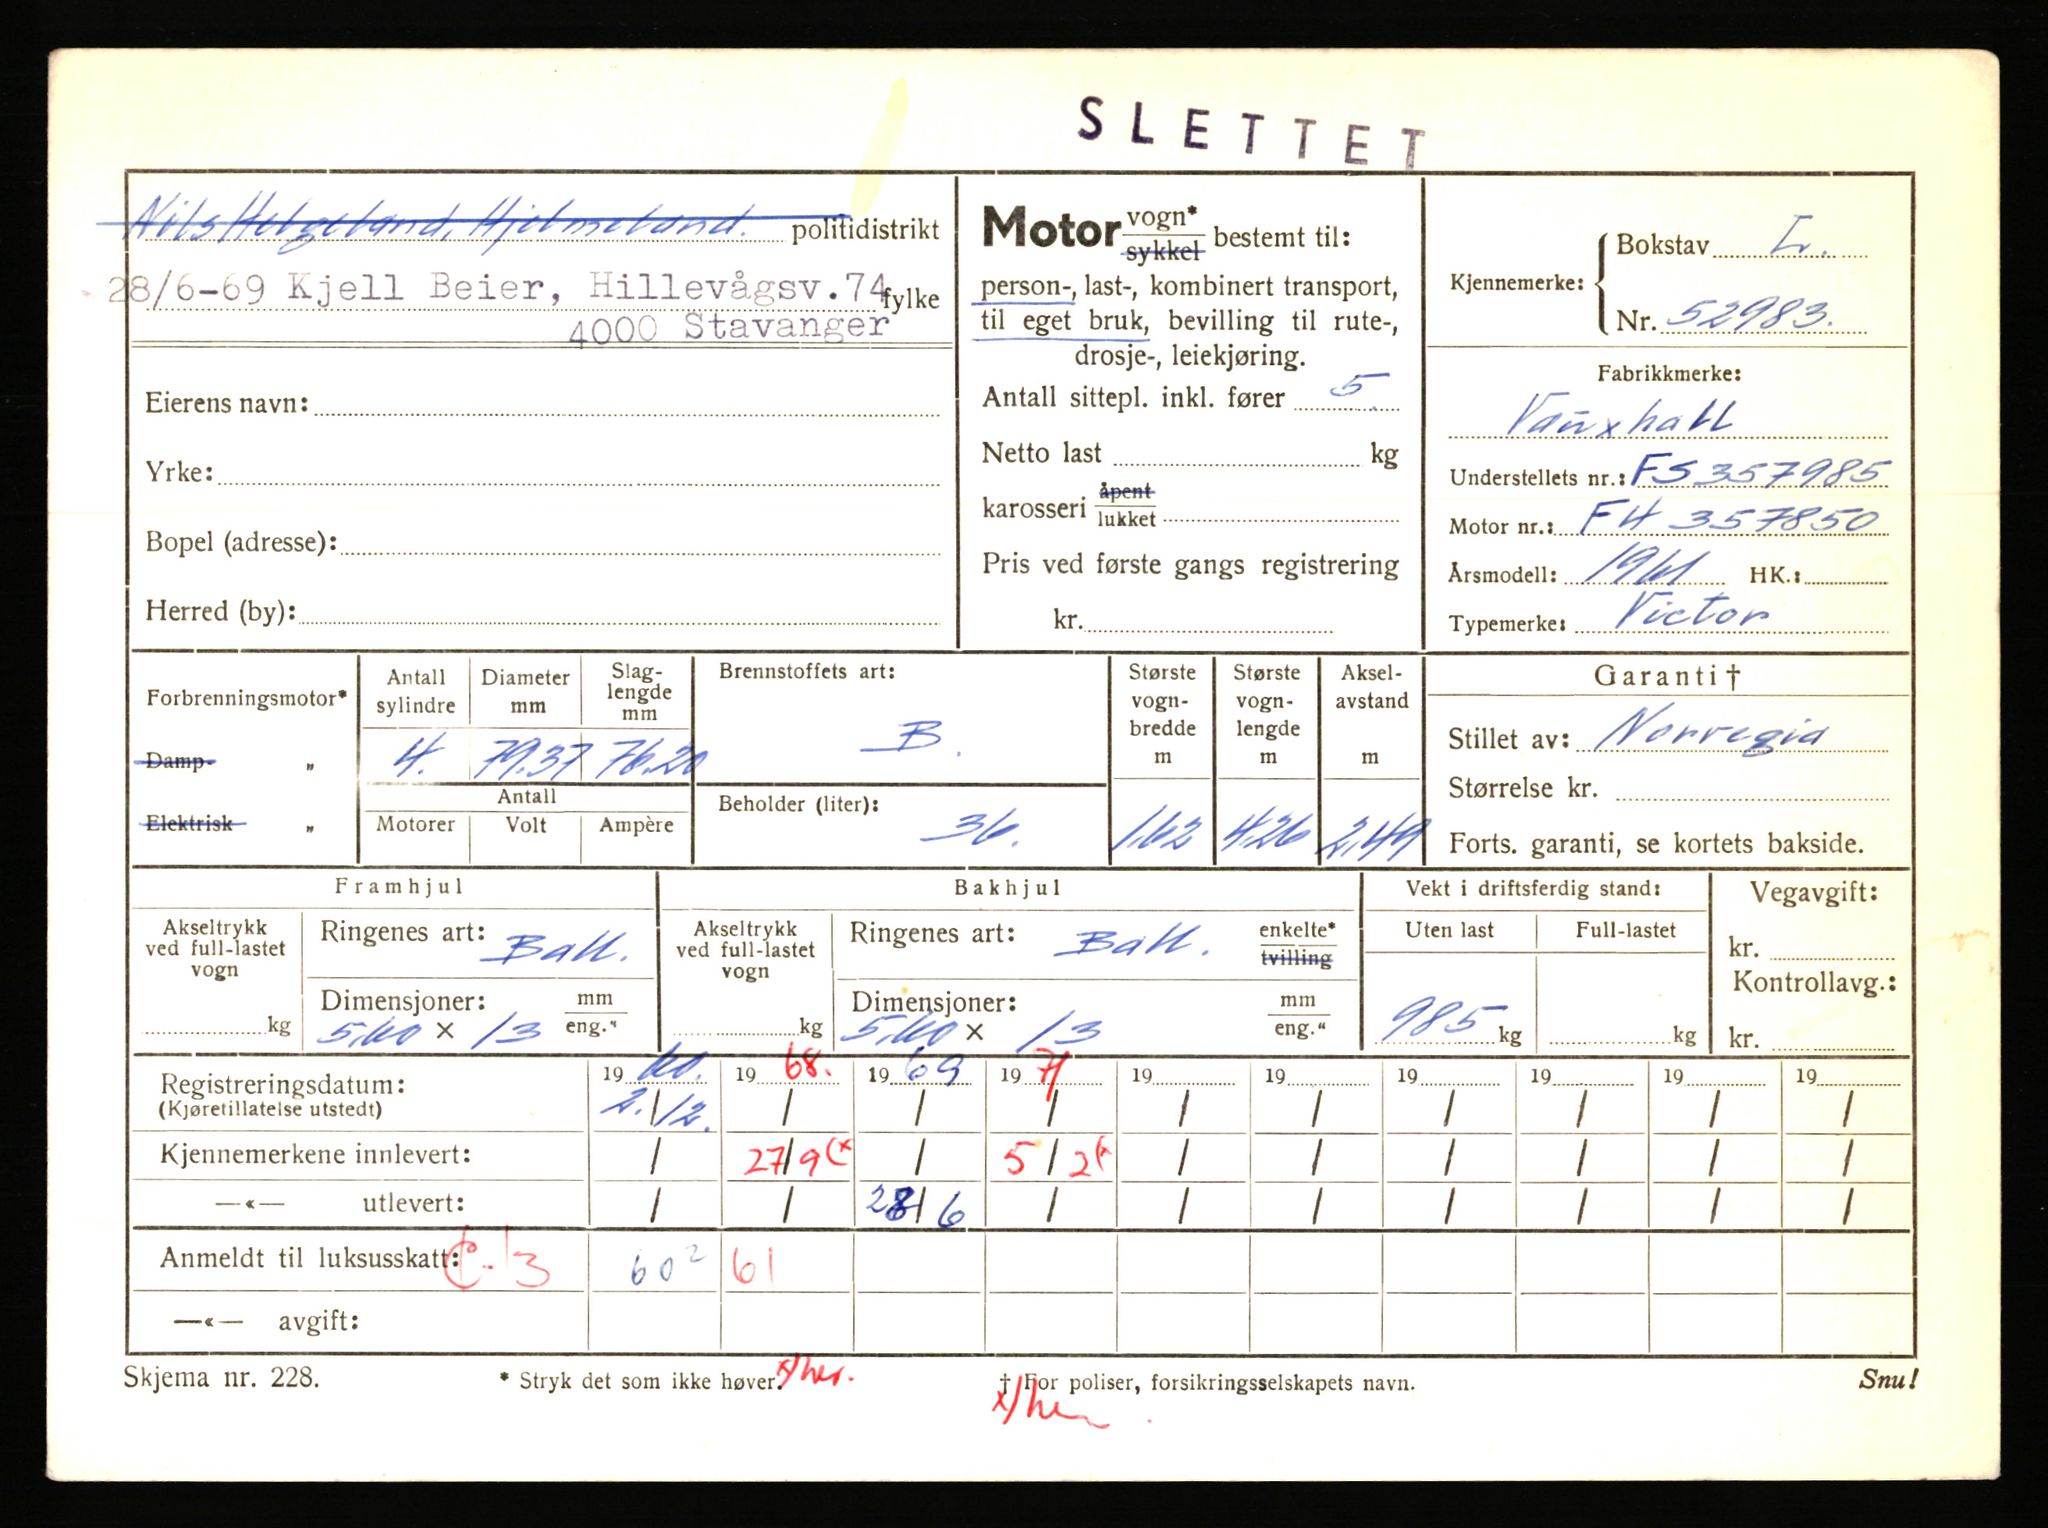 SLETTET
Nils Helgeland, Hjelmeland. politidistrikt
28/6-69 Kjell Beier, Hillevågsv.74 fylke
4000 Stavanger
Eierens navn:
Yrke:
Bopel (adresse):
Herred (by):
Motor vogn* sykkel bestemt til:
person-, last-, kombinert transport,
til eget bruk, bevilling til rute-,
drosje-, leiekjøring.
Antall sittepl. inkl. fører 5.
Netto last kg
karosseri åpent lukket
Pris ved første gangs registrering
kr.
Kjennemerke: Bokstav L.
Nr. 52983.
Fabrikkmerke:
Vauxhall
Understellets nr.: FS 357985
Motor nr.: FH 357850
Årsmodell: 1961 HK.:
Typemerke: Victor
Forbrenningsmotor*
Damp- „
Elektrisk „
Antall sylindre
4.
Diameter mm
79.37
Slag-lengde mm
76.20
Antall
Motorer Volt Ampère
Brennstoffets art:
B.
Beholder (liter):
36.
Største vogn-bredde m
1.62
Største vogn-lengde m
4.26
Aksel-avstand m
2,49
Garanti †
Stillet av: Norvegia
Størrelse kr.
Forts. garanti, se kortets bakside.
Framhjul
Akseltrykk ved full-lastet vogn
kg
Ringenes art: Ball.
Dimensjoner: mm
5,60 × 13 eng."
Bakhjul
Akseltrykk ved full-lastet vogn
kg
Ringenes art: Ball. enkelte* tvilling
Dimensjoner: mm
5,60 × 13 eng."
Vekt i driftsferdig stand:
Uten last Full-lastet
985 kg kg
Vegavgift:
kr.
Kontrollavg.:
kr.
Registreringsdatum: 19 60. 19 68. 19 69 19 71 19 19 19 19 19 19
(Kjøretillatelse utstedt) 2./12. / / / / / / / / /
Kjennemerkene innlevert: / 27/9 (x / 5/2 (x / / / / / /
—«— utlevert: / / 28/6 / / / / / / /
Anmeldt til luksusskatt: 13 60 2 61
—«— avgift:
Skjema nr. 228. * Stryk det som ikke høver. x/her. † For poliser, forsikringsselskapets navn. Snu!
x/her